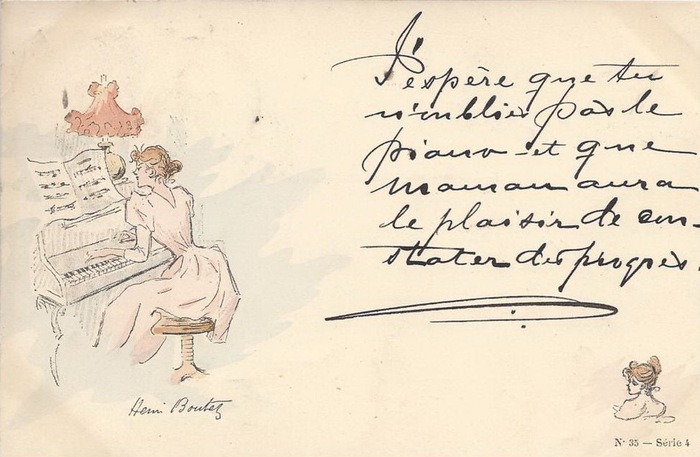 J'espère que tu
n'oublies pas le
piano et que
maman aura
le plaisir de con-
stater des progrès.
Henri Boutet
N° 35 — Série 4